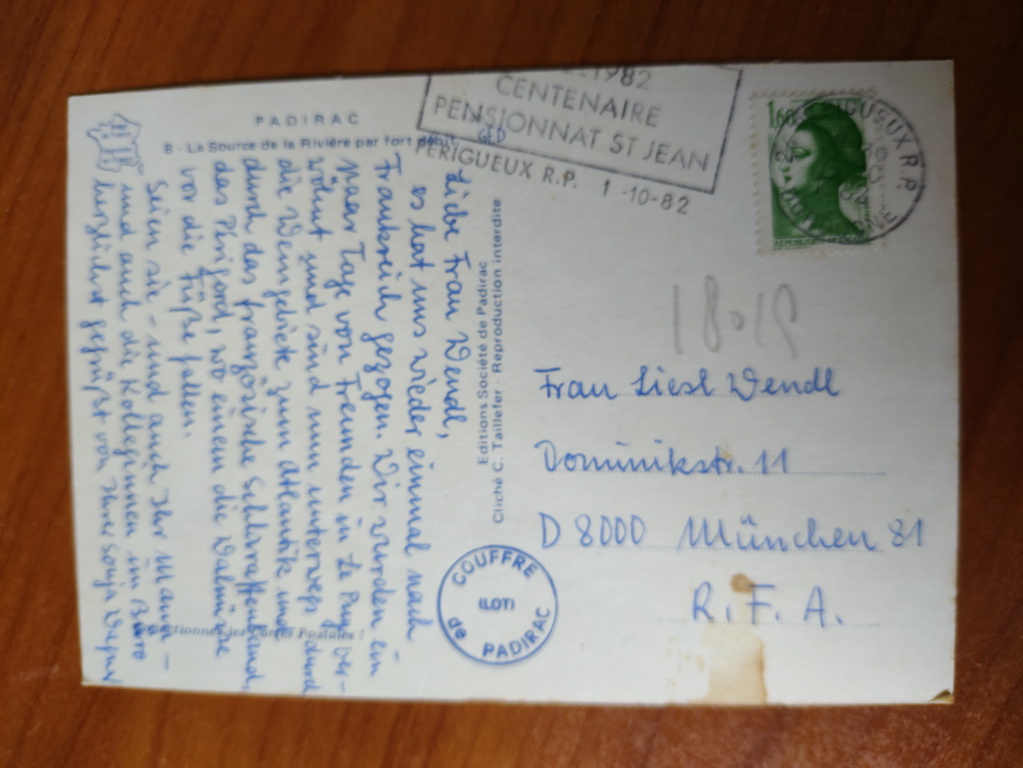 PADIRAC
8 - La Source de la Rivière par fort débit
Liebe Frau Wendl,
es hat uns wieder einmal nach
Frankreich gezogen. Wir wurden ein
paar Tage von Freunden in Le Puy ver-
wöhnt und sind nun unterwegs durch
die Weingebiete zum Atlantik und
durch das französische Schlaraffenland,
das Périgord, wo einem die Walnüsse
vor die Füße fallen.
Seien sie - und auch Ihr Mann -
und auch die Kolleginnen im Büro
herzlichst gegrüßt von Ihrer Sonja
Editions Société de Padirac
Cliché C. Taillefer - Reproduction interdite
Cartes Postales !
GOUFFRE
(LOT)
de PADIRAC
-1982
CENTENAIRE
PENSIONNAT ST JEAN
PERIGUEUX R.P. 1 -10-82
1,60
PERIGUEUX R.P.
18019
Frau Liesl Wendl
Dominikstr. 11
D 8000 München 81
R.F.A.